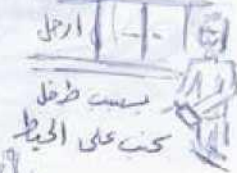 ارحل
بسبب طفل
كتب على الحيط